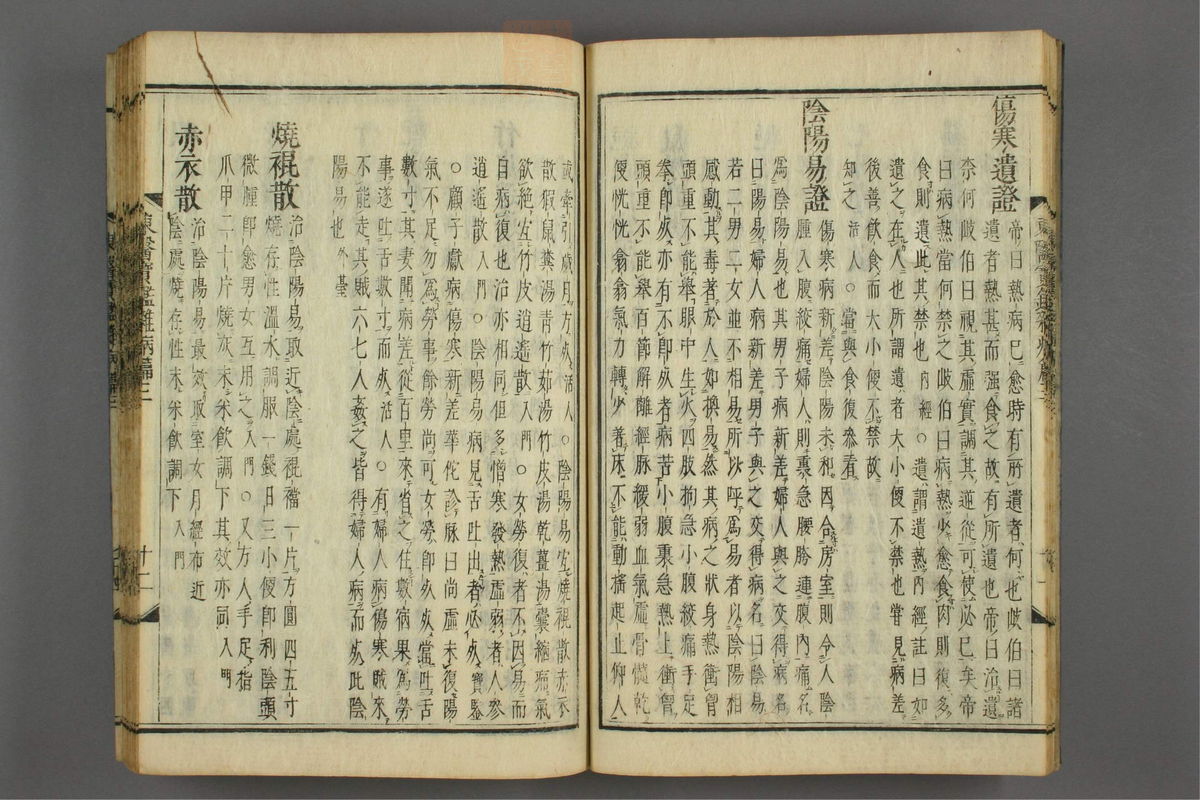 傷寒遺證 帝曰熱病已愈時有所遺者何也岐伯曰諸
遺者熱甚而强食之故有所遺也帝曰治遺
柰何岐伯曰視其虛實調其逆從可使必已矣帝
曰病熱當何禁之岐伯曰病熱少愈食肉則復多
食則遺此其禁也內經○遺謂遺熱內經註曰如
遺之在人也所謂遺者大小便不禁也甞見病差
後善飮食而大小便不禁故
知之活人○當與食復叅看
陰陽易證 傷寒病新差陰陽未和因合房室則令人陰
腫入腹絞痛婦人則裏急腰胯連腹內痛名
爲陰陽易也其男子病新差婦人與之交得病名
曰陽易婦人病新差男子與之交得病名曰陰易
若二男二女並不相易所以呼爲易者以陰陽相
感動其毒著於人如換易然其病之狀身熱衝胷
頭重不能擧眼中生火四肢拘急小腹絞痛手足
拳卽死亦有不卽死者病苦小腹裏急熱上衝胷
頭重不能擧百節解離經脉緩弱血氣虛骨髓乾
便恍恍翕翕氣力轉少著床不能動搖起止仰人
或牽引歲月方死活人○陰陽易宜燒裩散赤衣
散猳鼠糞湯靑竹茹湯竹皮湯乾薑湯囊縮痢氣
欲絶宜竹皮逍遙散入門○女勞復者不因易而
自病復也治亦相同但多憎寒發熱虛弱者人參
逍遙散入門○陰陽易病見舌吐出者必死寶鑑
○顧子獻病傷寒新差華佗診脉曰尙虛未復陽
氣不足勿爲勞事餘勞尙可女勞卽死死當吐舌
數寸其妻聞病差從百里來省之住數宿果爲勞
事遂吐舌數寸而死活人○有婦人病傷寒賊來
不能走其賊六七人姦之皆得婦人病而死此陰
陽易也外臺
燒裩散 治陰陽易取近陰處裩襠一片方圓四五寸
燒存性溫水調服一錢日三小便卽利陰頭
微腫卽愈男女互用之入門○又方人手足指
爪甲二十片燒灰米飮調下其效亦同入門
赤衣散 治陰陽易最效取室女月經布近
陰處燒存性末米飮調下入門
東醫寶鑑雜病篇三
十二